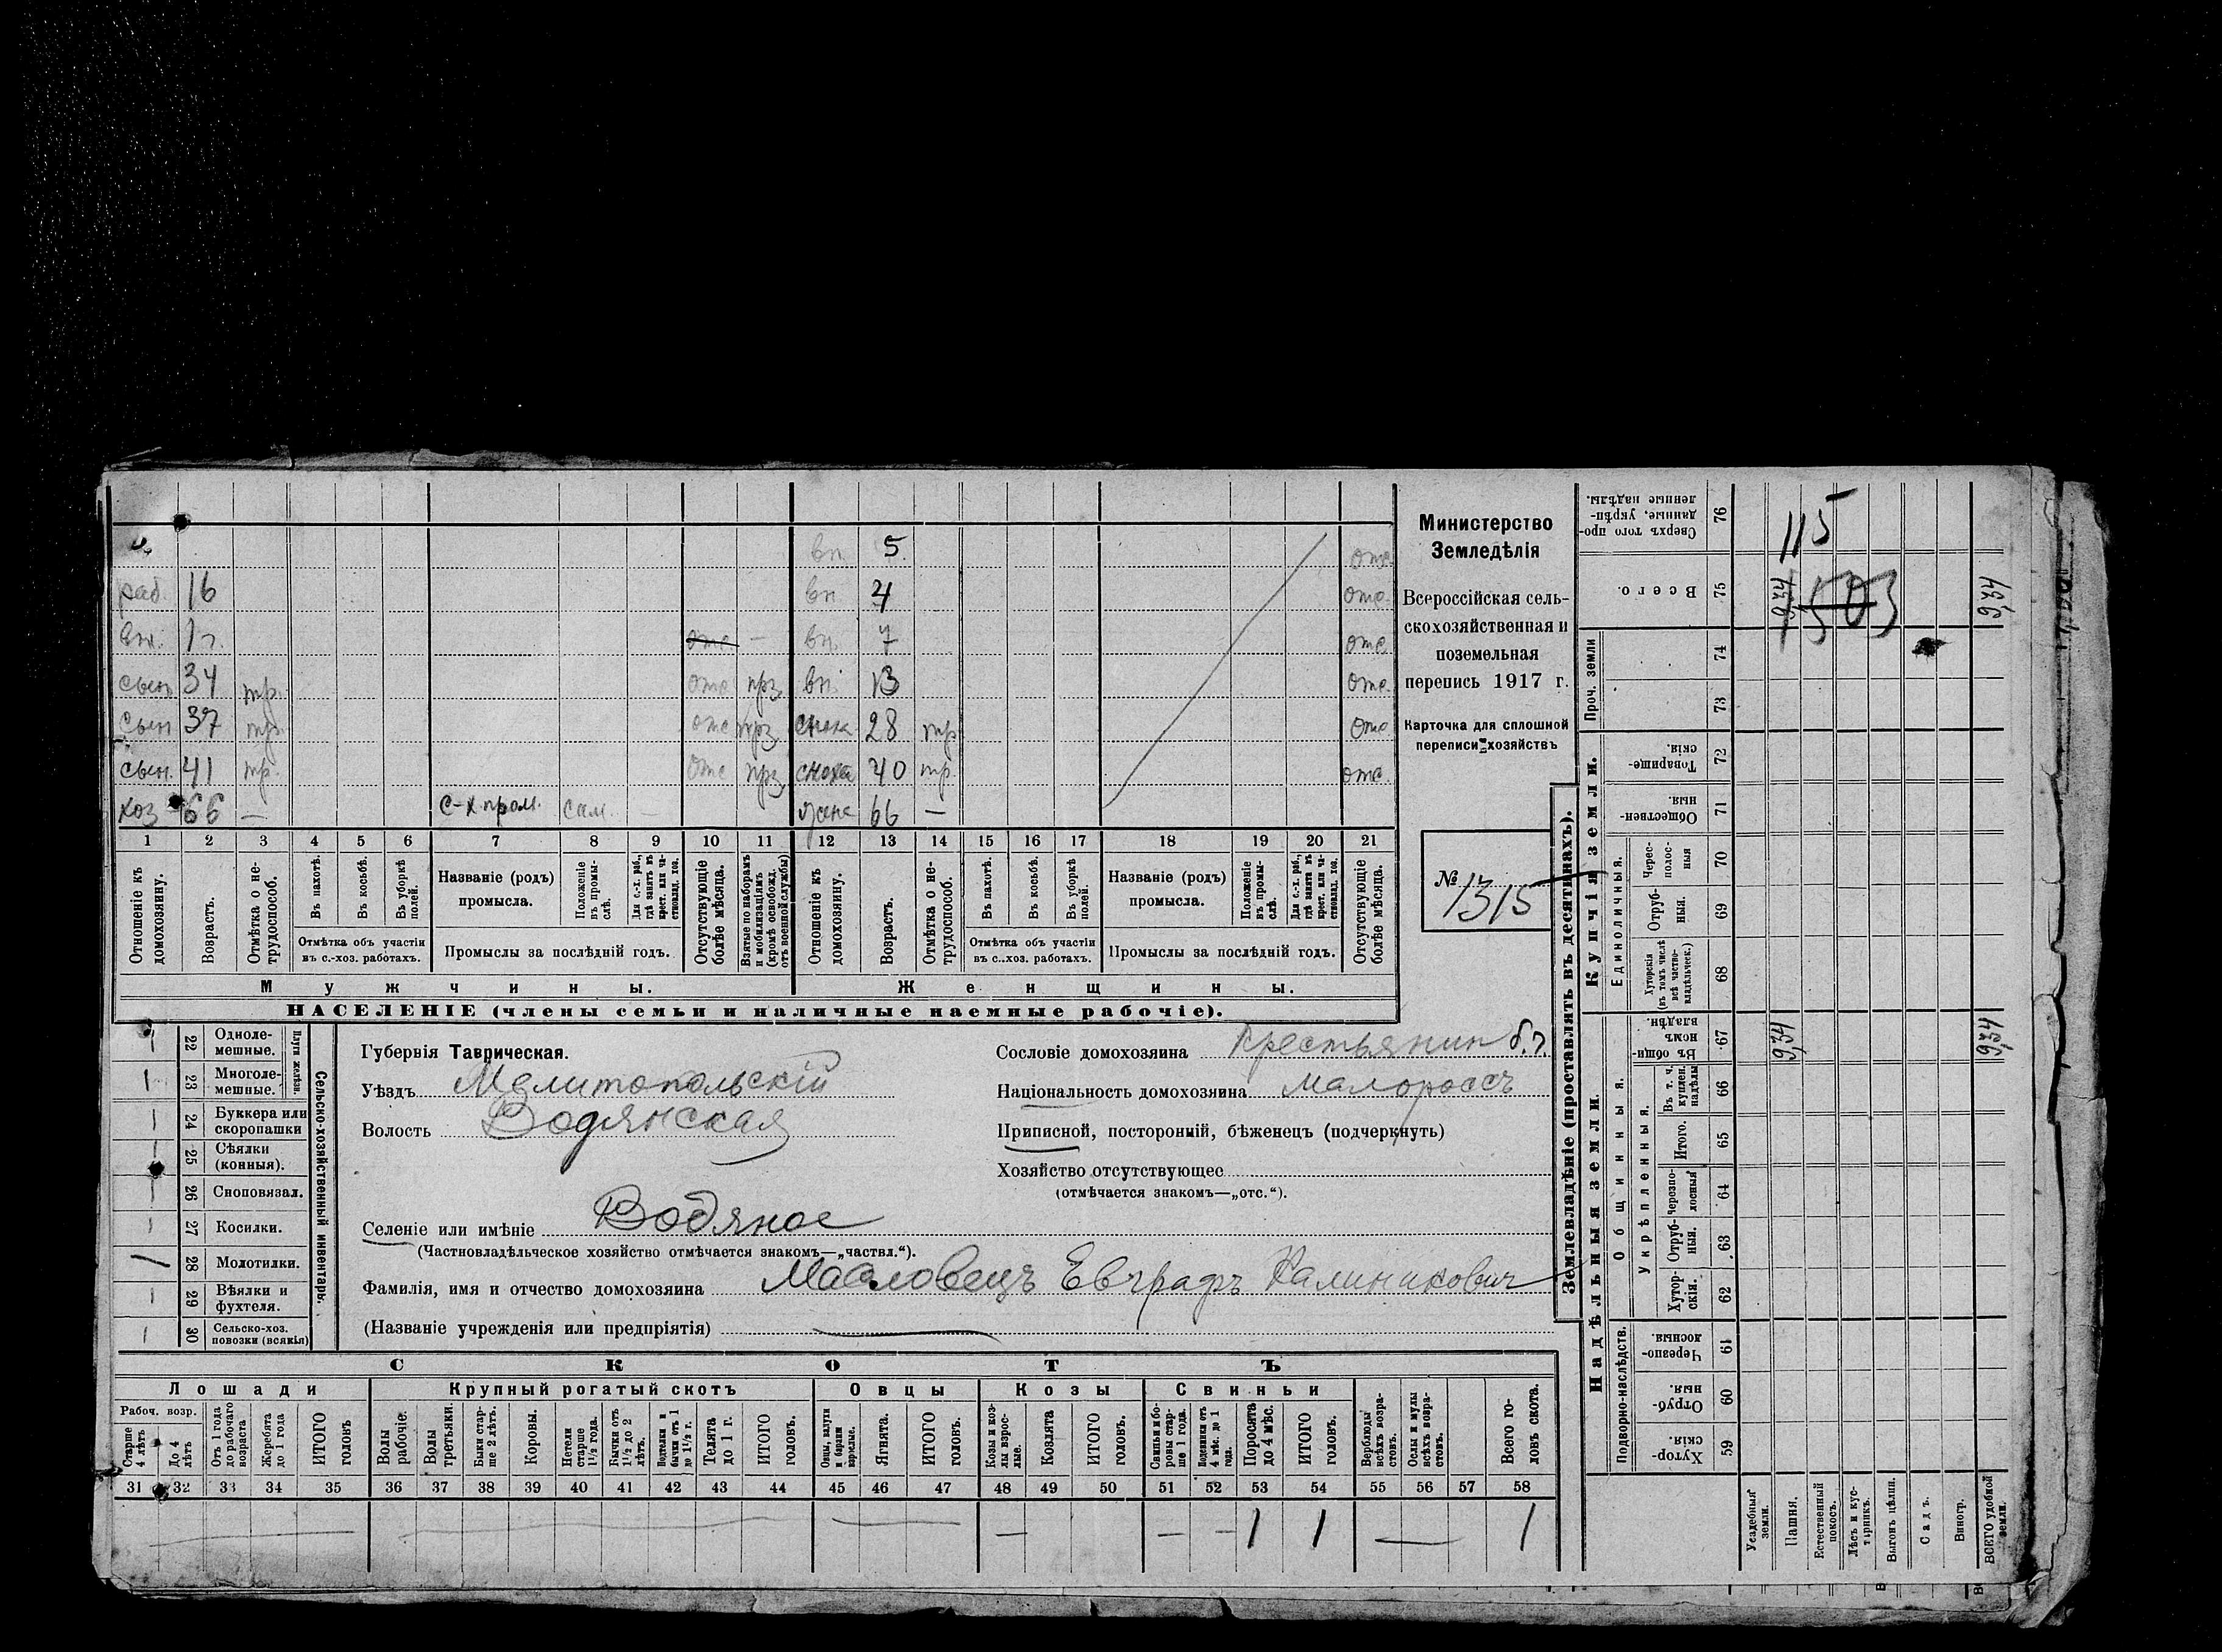 вн. 5. отс.
раб. 16 вн. 4 отс.
вн. 1 г. отс — вн. 7 отс
сын 34 тр. отс прз. вн. 13 отс.
сын 37 тр. отс прз. сноха 28 тр. отс
сын. 41 тр. отс прз. сноха 40 тр. отс.
хоз 66 — с-х пром. сам. — жена 66 —
1 2 3 4 5 6 7 8 9 10 11 12 13 14 15 16 17 18 19 20 21
Отношеніе къ домохозяину.
Возрастъ.
Отмѣтка о не-трудоспособ.
Въ пахотѣ.
Въ косьбѣ.
Въ уборкѣ полей.
Отмѣтка объ участіи
въ с.-хоз. работахъ.
Названіе (родъ)
промысла.
Положеніе въ промыс-лѣ.
Для с.-х. раб., гдѣ занятъ въ крест. или ча-стновлад. хоз.
Промыслы за послѣдній годъ.
Отсутствующіе болѣе мѣсяца.
Взятые по наборамъ и мобилизаціямъ (кромѣ освобожд. отъ военной службы)
Отношеніе къ домохозяину.
Возрастъ.
Отмѣтка о не-трудоспособ.
Въ пахотѣ.
Въ косьбѣ.
Въ уборкѣ полей.
Отмѣтка объ участіи
въ с..хоз. работахъ.
Названіе (родъ)
промысла.
Положеніе въ промы-слѣ.
Для с.-х. раб., гдѣ занята въ крест. или ча-стновлад. хоз.
Промыслы за послѣдній годъ.
Отсутствующіе болѣе мѣсяца.
Мужчины. Женщины.
НАСЕЛЕНІЕ (члены семьи и наличные наемные рабочіе).
Министерство
Земледѣлія
Всероссійская сель-
скохозяйственная и
поземельная
перепись 1917 г.
Карточка для сплошной
переписи хозяйствъ
№ 1315
Сельско-хозяйственный инвентарь.
Плуги желѣзн.
22 Одноле-мешные.
1 23 Многоле-мешные.
24 Буккера или скоропашки
25 Сѣялки (конныя).
26 Сноповязал.
27 Косилки.
28 Молотилки.
29 Вѣялки и фухтеля.
30 Сельско-хоз. повозки (всякія)
Губернія Таврическая.
Уѣздъ Мелитопольскій
Волость Водянская
Селеніе или имѣніе Водяное
(Частновладѣльческое хозяйство отмѣчается знакомъ—„частвл.“).
Фамилія, имя и отчество домохозяина Масловецъ Евграфъ Калиникович
(Названіе учрежденія или предпріятія)
Сословіе домохозяина Крестьянин б.г.
Національность домохозяина Малороссъ
Приписной, посторонній, бѣженецъ (подчеркнуть)
Хозяйство отсутствующее
(отмѣчается знакомъ—„отс.“).
СКОТЪ
Лошади Крупный рогатый скотъ Овцы Козы Свиньи
Рабоч. возр.
Старше 4 лѣтъ
До 4 лѣтъ
Отъ 1 года до рабочаго возраста
Жеребята до 1 года
ИТОГО головъ
Волы рабочіе.
Волы третьяки.
Быки стар-ше 2 лѣтъ.
Коровы.
Нетели старше 1½ года.
Бычки отъ 1½ до 2 лѣтъ.
Подтелки и бычки отъ 1 до 1½ г.
Телята до 1 г.
ИТОГО головъ.
Овцы, валухи и бараны взрослые.
Ягнята.
ИТОГО головъ.
Козы и коз-лы взрос-лые.
Козлята
ИТОГО головъ.
Свиньи и бо-ровы стар-ше 1 года.
Подсвинки отъ 4 мѣс. до 1 года.
Поросята до 4 мѣс.
ИТОГО головъ.
Верблюды всѣхъ возра-стовъ.
Ослы и мулы всѣхъ возра-стовъ.
Всего го-ловъ скота.
31 32 33 34 35 36 37 38 39 40 41 42 43 44 45 46 47 48 49 50 51 52 53 54 55 56 57 58
— — — — — — 1 1 — 1
Землевладѣніе (проставлять въ десятинахъ).
Надѣльныя земли. Купчія земли. Проч. земли
Подворно-наслѣдств. Общинныя. Единоличныя.
Укрѣпленныя.
Сверхъ того про-данные, укрѣп-ленные надѣлы. 76 115
Всего. 75 9,34 503 9,34
74
73
Товарище-скія. 72
Обществен-ныя. 71
Черес-полос-ныя 70
Отруб-ныя. 69
Хуторскія (въ томъ числѣ всѣ частно-владѣльческ.) 68
Въ общи-номъ владѣн. 67 9,34 9,34
Въ т. ч. куплен. надѣлы 66
Итого. 65
Черезпо-лосныя 64
Отруб-ныя. 63
Хутор-скія. 62
Черезпо-лосныя. 61
Отруб-ныя 60
Хутор-скія. 59
Усадебныя земли.
Пашня.
Естественный покосъ.
Лѣсъ и кус-тарникъ.
Выгонъ цѣлин.
Садъ.
Виногр.
ВСЕГО удобной земли.